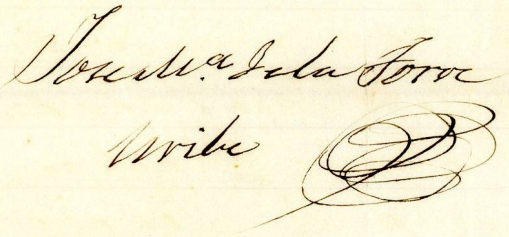 Jose Ma. de la Torre
Uribe